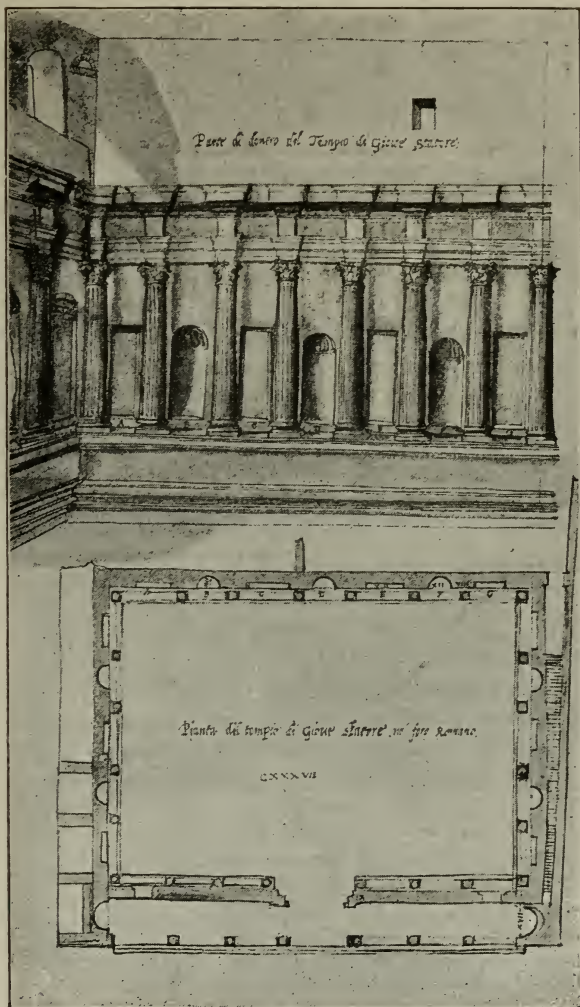 Parte di dentro del Tempio di Giove statore
A B C D E F G
Pianta del tempio di Giove statore nel foro Romano.
CXXXVII
XVII